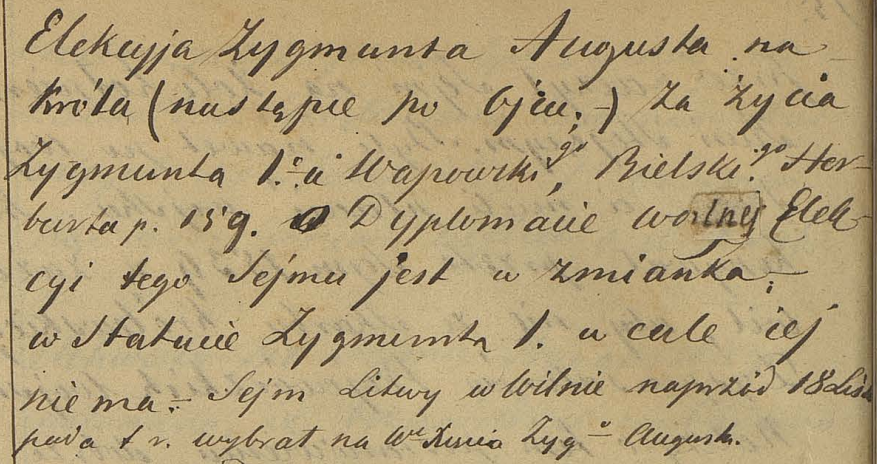 Elekcyja Zygmunta Augusta na
Króla (nastąpie po Ojcu;-) za życia
Zygmunta 1.º u Wapowski.go Bielski.go Her-
burta p. 159. O Dyplomacie wolnej Elek-
cyi tego Sejmu jest w zmianka;
w Statucie Zygmunta 1. w cale iej
nie ma.- Sejm Litwy w Wilnie naprzód 18 Lis
pada t r. wybrał na Wo Xięcia Zygo Augusta.